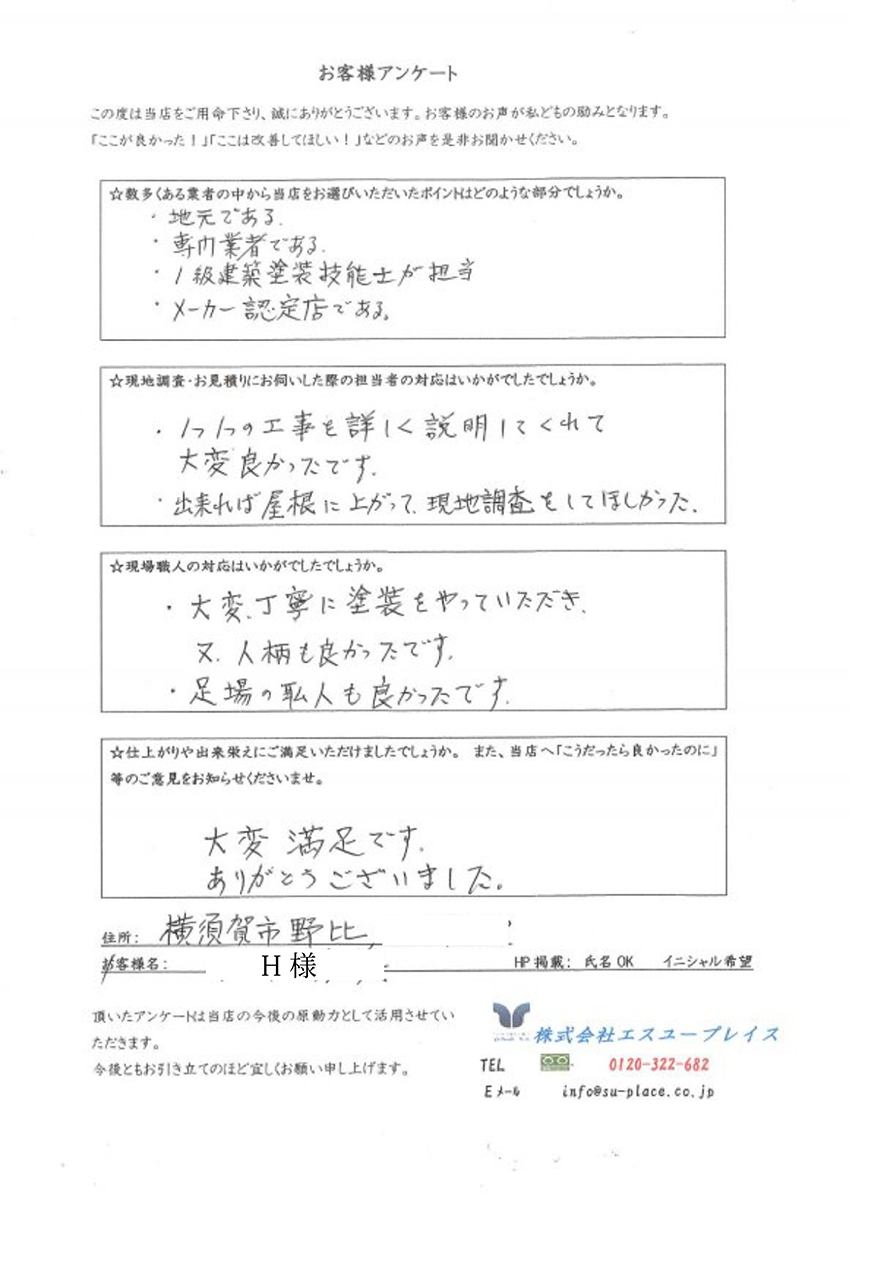 お客様アンケート
この度は当店をご用命下さり、誠にありがとうございます。お客様のお声が私どもの励みとなります。
「ここが良かった！」「ここは改善してほしい！」などのお声を是非お聞かせください。
☆数多くある業者の中から当店をお選びいただいたポイントはどのような部分でしょうか。
・地元である.
・専門業者である.
・1級建築塗装技能士が担当
・メーカー認定店である。
☆現地調査・お見積りにお伺いした際の担当者の対応はいかがでしたでしょうか。
・1つ1つの工事を詳しく説明してくれて
大変良かったです.
・出来れば屋根に上がって、現地調査をしてほしかった.
☆現場職人の対応はいかがでしたでしょうか。
・大変、丁寧に塗装をやっていただき、
又、人柄も良かったです.
・足場の職人も良かったです.
☆仕上がりや出来栄えにご満足いただけましたでしょうか。 また、当店へ「こうだったら良かったのに」
等のご意見をお知らせくださいませ。
大変 満足です.
ありがとうございました。
住所： 横須賀市野比
お客様名： H 様 HP 掲載： 氏名 OK イニシャル希望
頂いたアンケートは当店の今後の原動力として活用させてい
ただきます。
今後ともお引き立てのほど宜しくお願い申し上げます。
株式会社エスユープレイス
TEL 0120-322-682
E メール info@su-place.co.jp